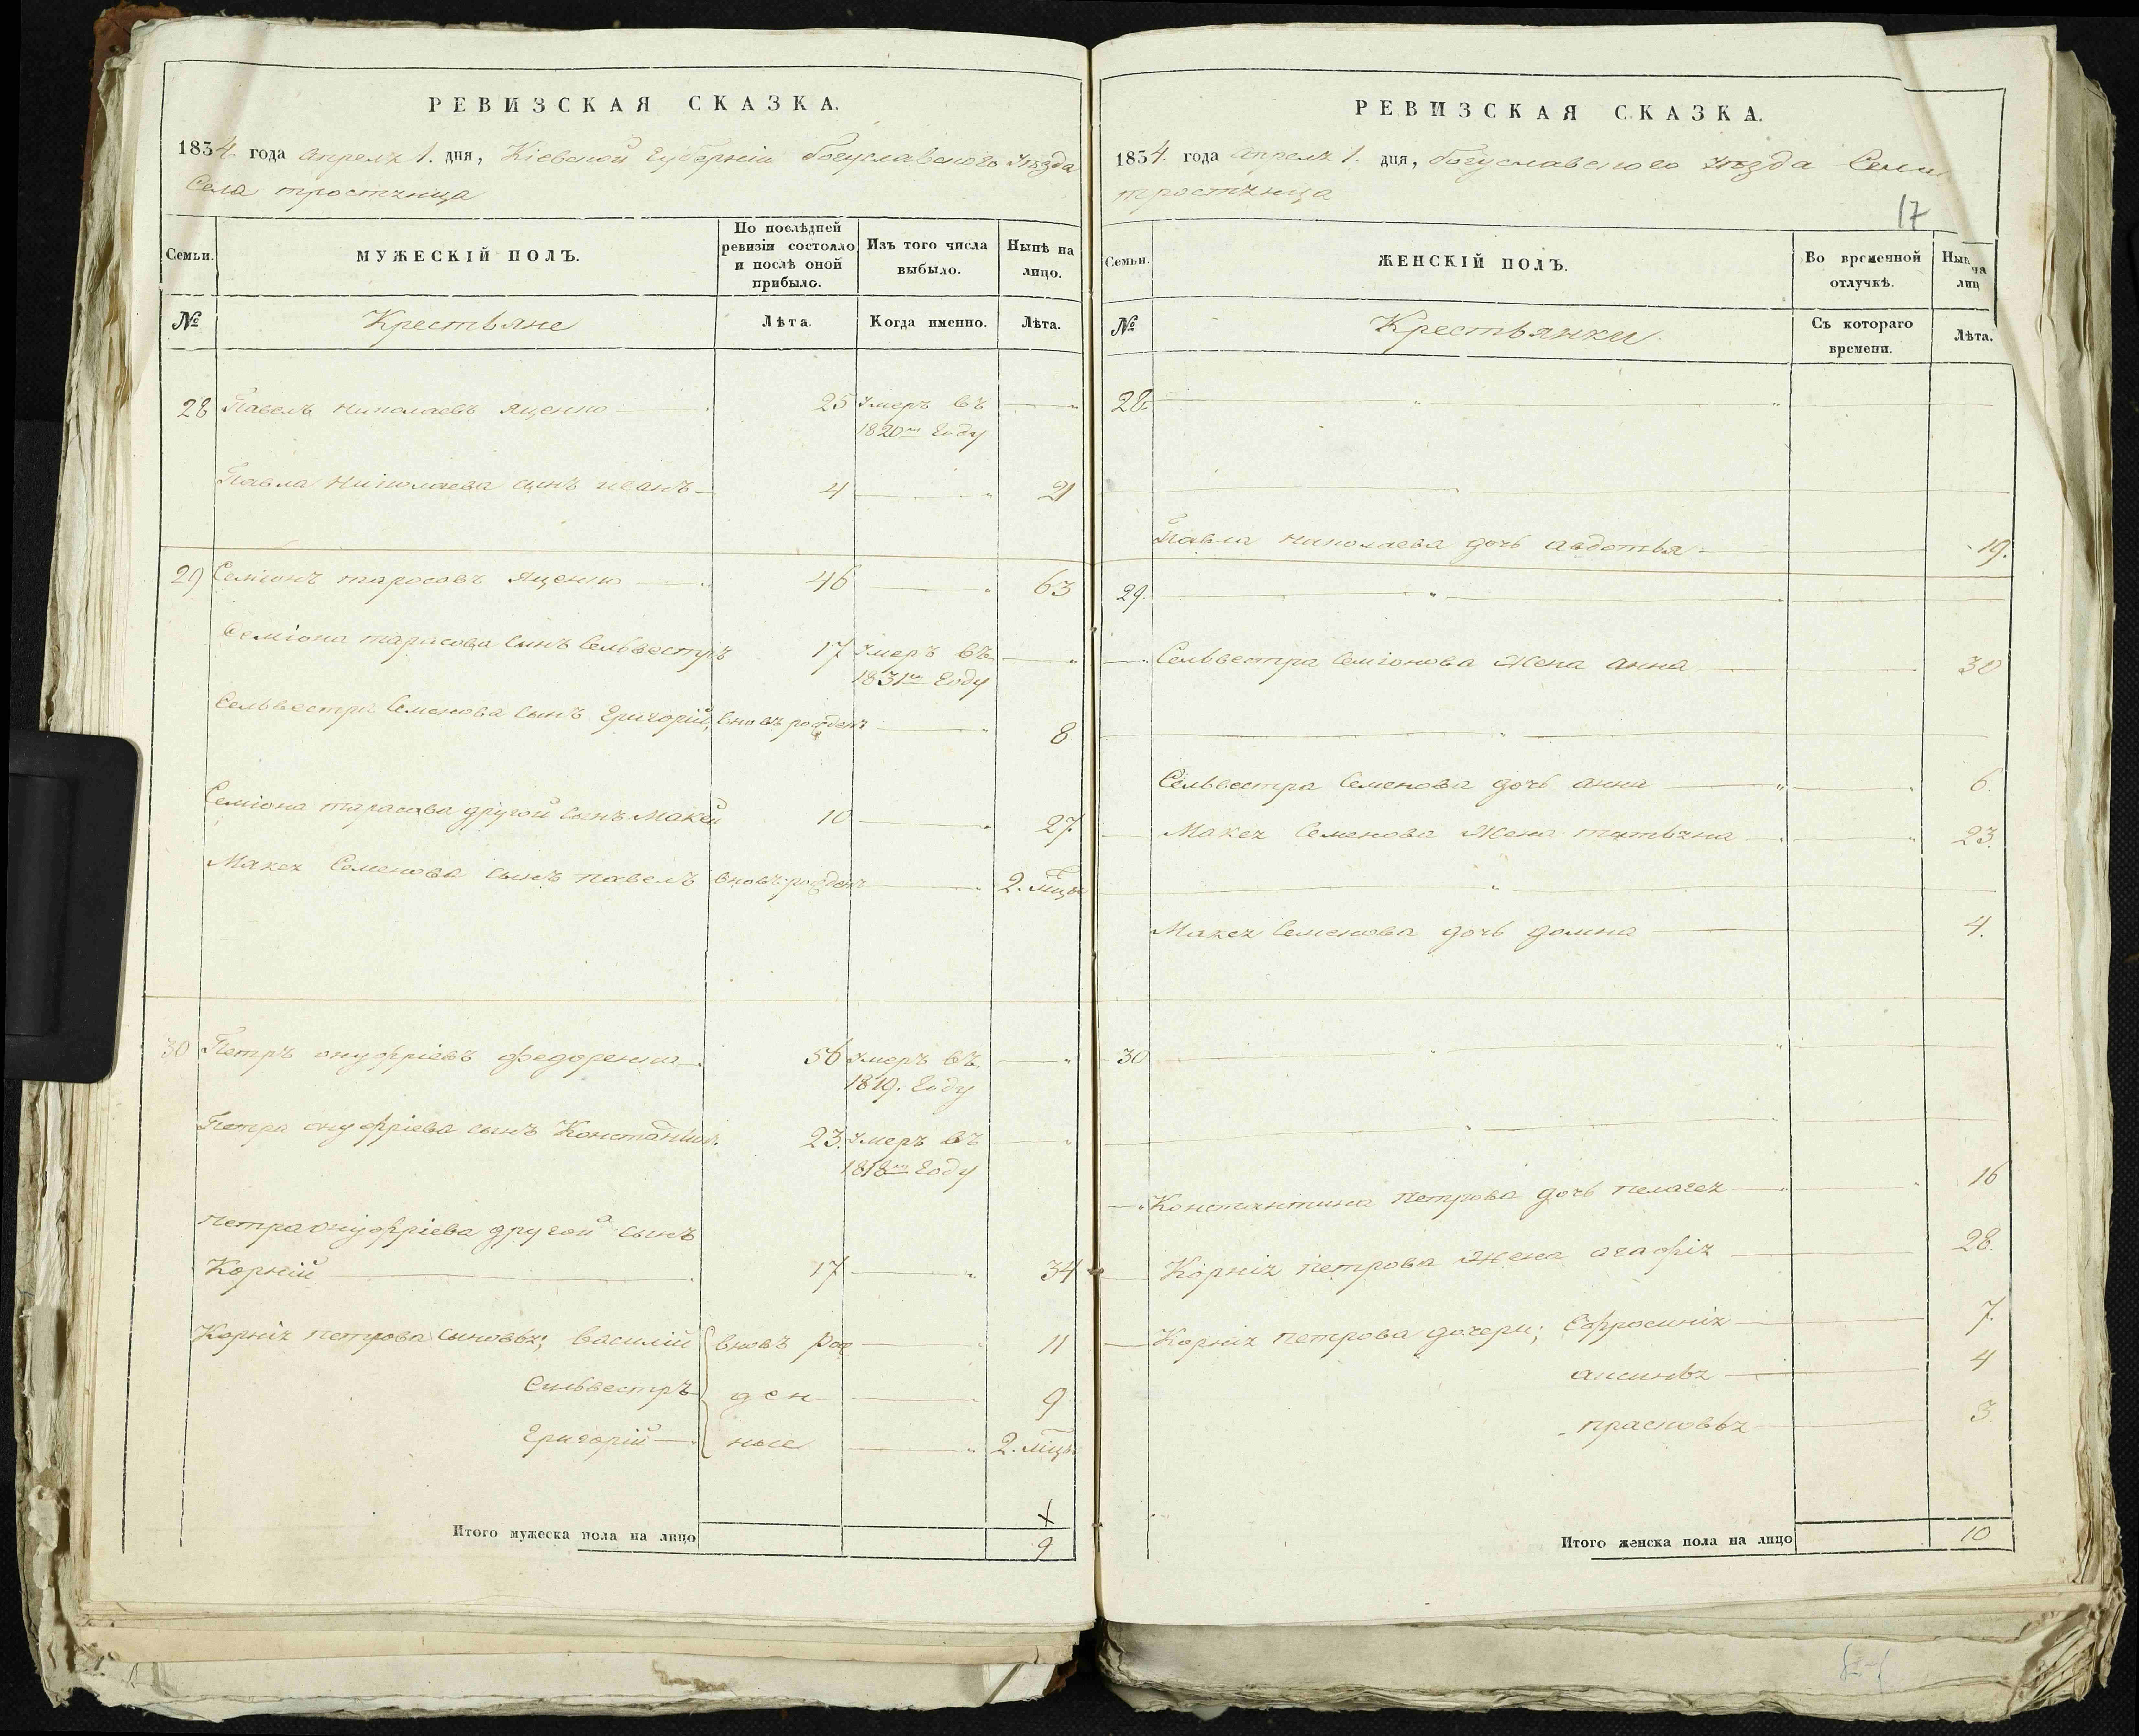 РЕВИЗСКАЯ СКАЗКА.
1834. года апреля 1. дня, Кіевской Губерніи богуславского уѣзда
Села тростянца
Семьи.
МУЖЕСКІЙ ПОЛЪ.
По послѣдней ревизіи состояло и послѣ оной прибыло.
Изъ того числа выбыло.
Нынѣ на лицо.
№
Крестьяне
Лѣта.
Когда именно.
Лѣта.
28 Павелъ николаевъ яценко 25 умеръ въ
1820м Году
Павла николаева сынъ иванъ 4 21
29 Семіонъ тарасовъ яценко 46 63
Семіона тарасова сынъ Сельвестръ 17 умеръ въ
1831м Году
Сельвестра Семенова сынъ Григорій, вновь рожденъ 8
Семіона тарасова другой сынъ Макей 10 27.
Макея Семенова сынъ павелъ вновь рожденъ 2. мцы
30 Петръ онуфріевъ федоренко 56 умеръ въ
1819. Году
Петра онуфріева сынъ Константин. 23. умеръ въ
1818м Году
петра онуфріева другой сынъ
Корній 17 34
Корнія петрова сыновья; василій вновь рож 11
Сильвестръ ден 9
Григорій ные 2. мцы
х
Итого мужеска пола на лицо 9
РЕВИЗСКАЯ СКАЗКА.
1834. года апреля 1. дня, богуславского уѣзда Села
тростянца
17
Семьи.
ЖЕНСКІЙ ПОЛЪ.
Во временной отлучкѣ.
Нын на лиц
№
Крестьянки
Съ котораго времени.
Лѣта.
28.
Павла николаева дочь авдотья 19.
29.
Сельвестра Семіонова жена анна 30
Сельвестра Семенова дочь анна 6.
Макея Семенова жена татьяна 23.
Макея Семенова дочь домна 4.
30
Константина петрова дочь пелагея 16
Корнія петрова жена агафія 28.
Корнія петрова дочери; Ефросинія 7.
аксинья 4
прасковья 3.
Итого женска пола на лицо 10